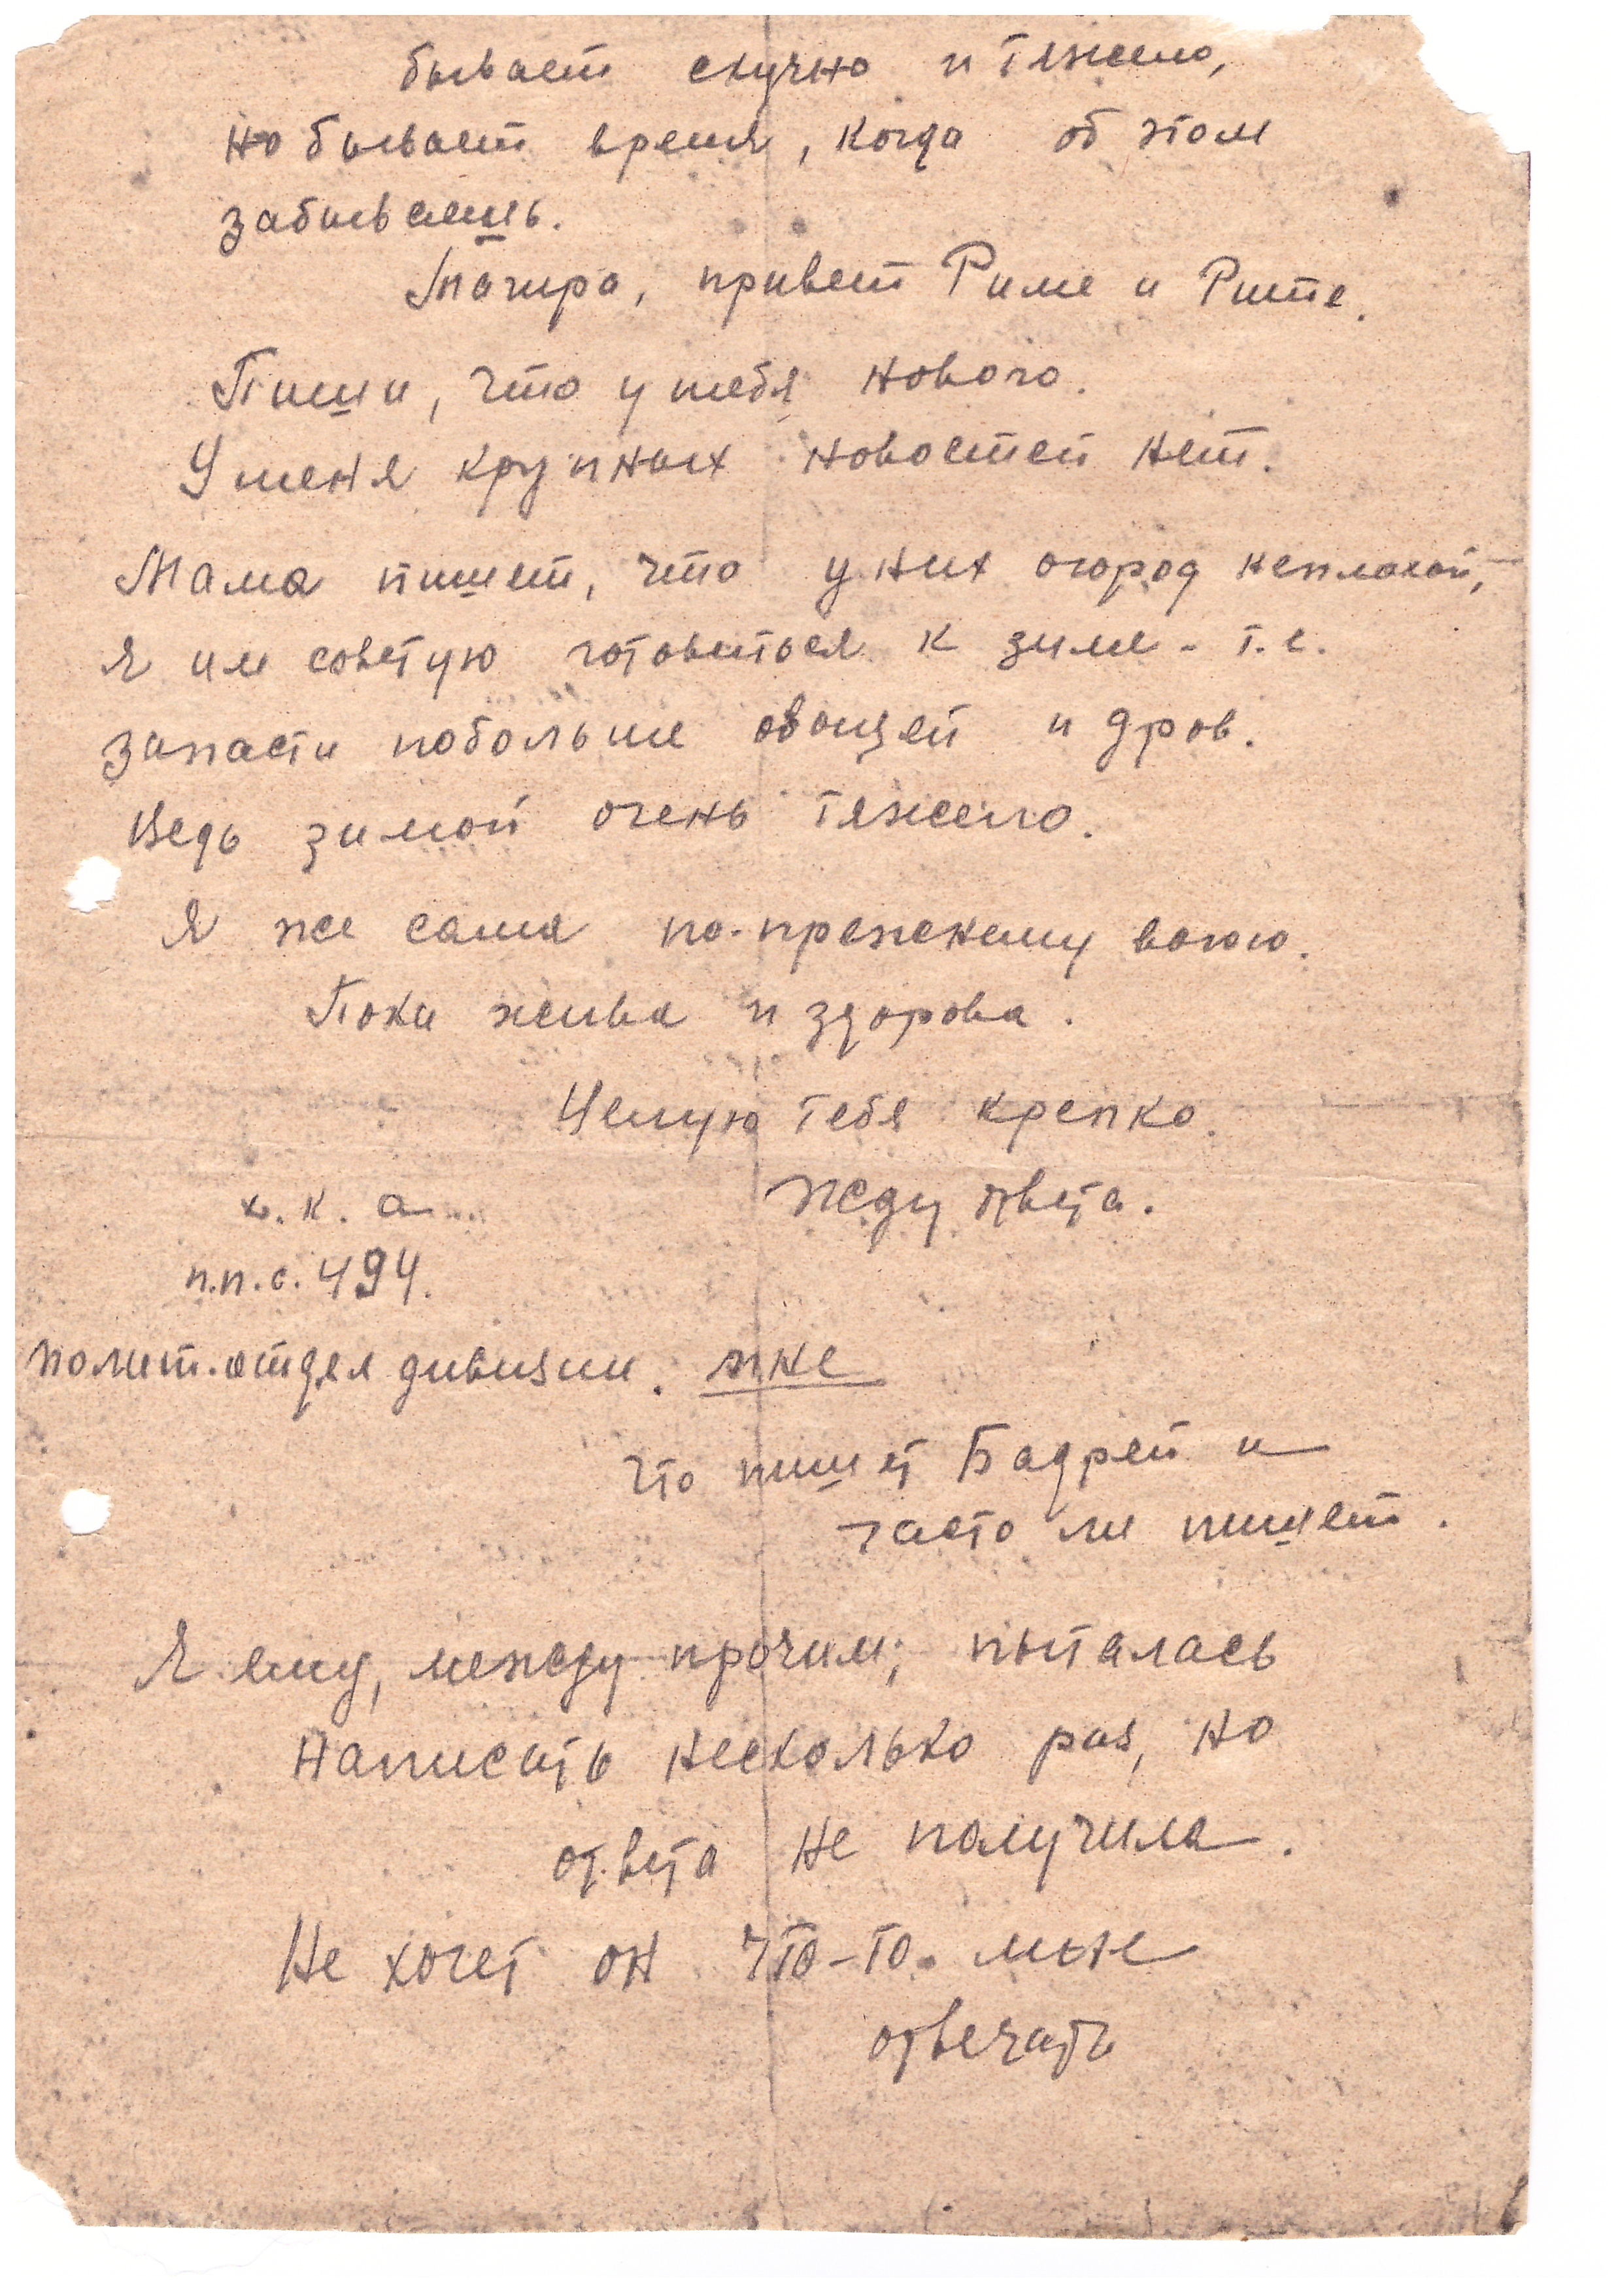 бывает скучно и тяжело,
но бывает время, когда об этом
забываешь.
Тагира, привет Риме и Рите.
Пиши, что у тебя нового.
У меня крупных новостей нет.
Мама пишет, что у них огород неплохой,
я им советую готовиться к зиме - т.е.
запасти побольше овощей и дров.
Ведь зимой очень тяжело.
Я же сама по-прежнему воюю.
Пока жива и здорова.
Целую тебя крепко.
Жду ответа.
п.п.с. 494.
полит.отдел дивизии.
Что пишет Бадрей и
часто ли пишет.
Я ему, между прочим, пыталась
написать несколько раз, но
ответа не получила.
Не хочет он что-то мне
отвечать